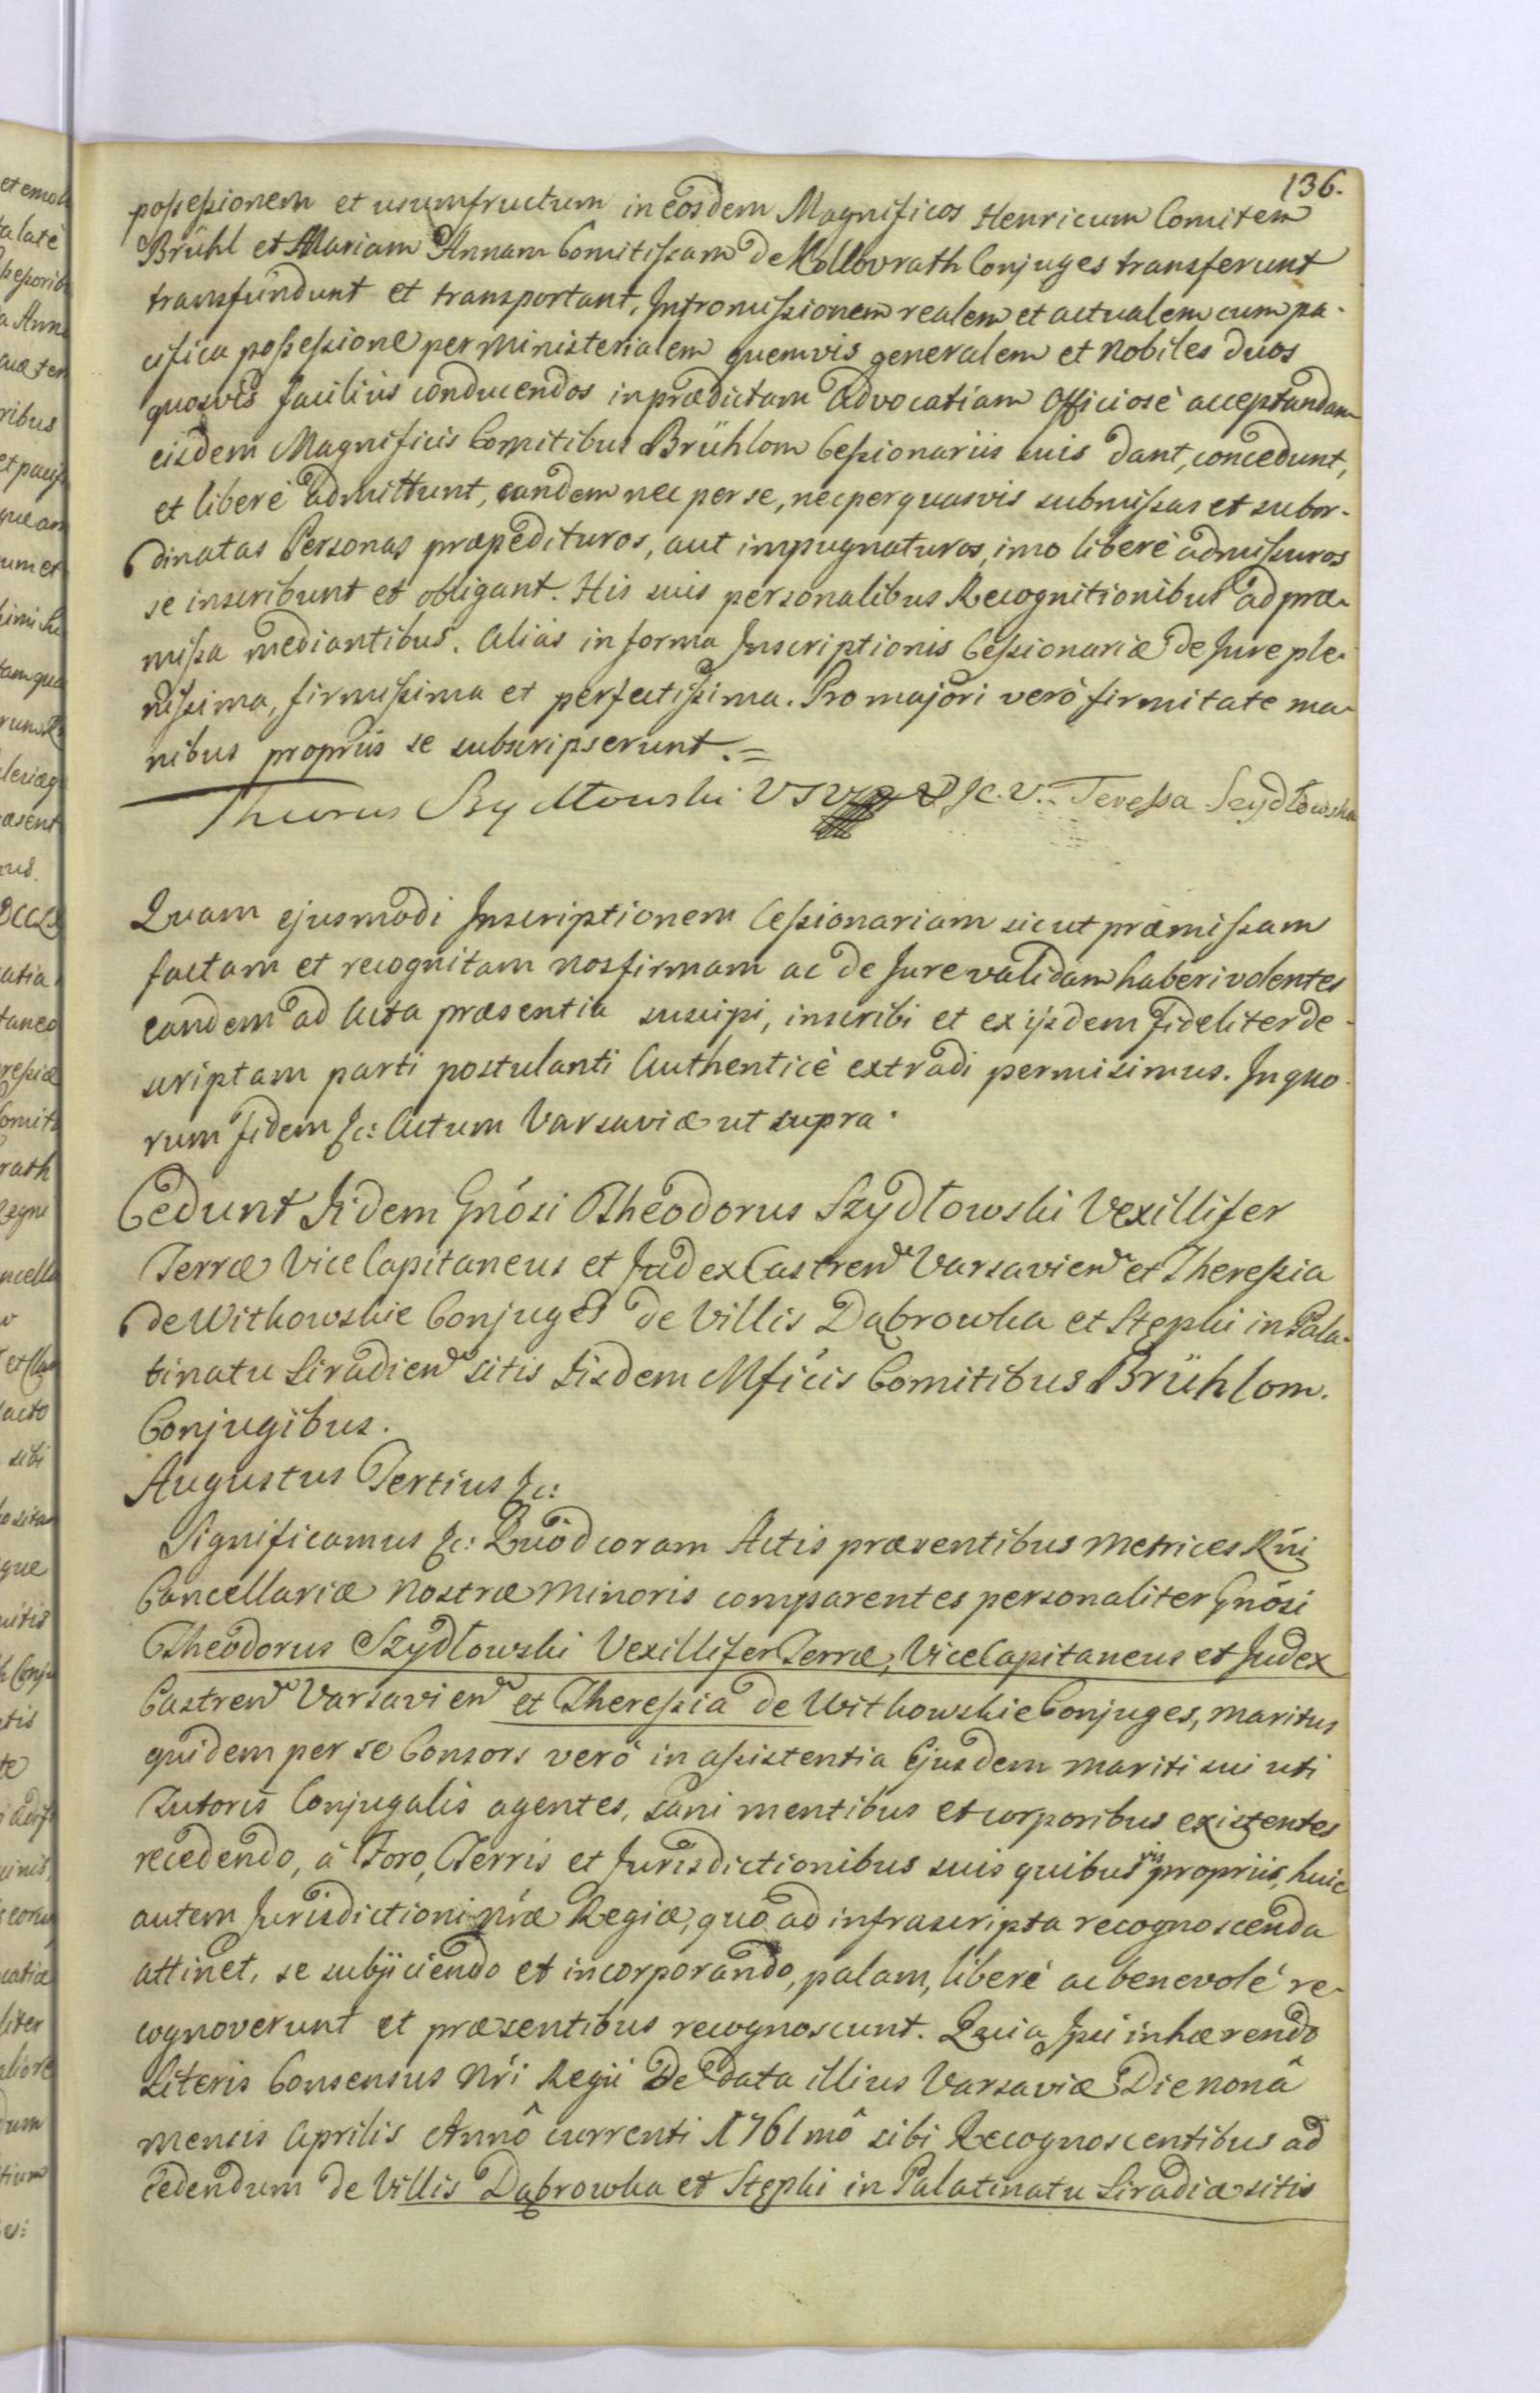 136.
possessionem et usumfructum in eosdem Magnificos Henricum Comitem
Brühl et Mariam Annam Comitissam de Kollovrath Conjuges transferunt
transfundunt et transportant, Intromissionem realem et actualem cum pa-
cifica possessione per Ministerialem quemvis generalem et Nobiles duos
quosvis facilius conducendos in prædictam Advocatiam Officiosè acceptandam
eisdem Magnificis Comitibus Brühlom Cessionariis suis dant, concedunt,
et liberè admittunt, eandem nec per se, nec per quasvis submissas et subor-
dinatas Personas præpedituros, aut impugnaturos, imo liberè admissuros
se inscribunt et obligant. His suis personalibus Recognitionibus ad præ-
missa mediantibus. Aliàs in forma Inscriptionis Cessionariæ de Jure ple-
nissima, firmissima et perfectissima. Pro majori verò firmitate ma-
nibus propriis se subscripserunt.=
Szydłowski Teressa Szydłowska
Quam ejusmodi Inscriptionem Cessionariam sicut præmissam
factam et recognitam nos firmam ac de Jure validam haberi volentes
eandem ad Acta præsentia suscipi, inscribi et ex ijsdem fideliter de-
scriptam parti postulanti Authenticè extradi permisimus. In quo-
rum fidem &c: Actum Varsaviæ ut supra.
Cedunt Iidem Gnósi Theodorus Szydłowski Vexillifer
Terræ Vice Capitaneus et Judex Castren Varsavien et Theressia
de Witkowskie Conjuges de Villis Dąbrowka et Stępki in Pala-
tinatu Siradien sitis Iisdem Mficis Comitibus Brühlom.
Conjugibus.
Augustus Tertius &c:
Significamus &c: Quòd coram Actis præsentibus Metrices Rńi
Cancellariæ Nostræ Minoris comparentes personaliter Gnósi
Theodorus Szydłowski Vexillifer Terræ, Vice Capitaneus et Judex
Castren Varsavien et Theressia de Witkowskie Conjuges, maritus
quidem per se Consors verò in assistentia Ejusdem mariti sui uti
Tutoris Conjugalis agentes, sani mentibus et corporibus existentes
recedendo, à Foro, Terris et Jurisdictionibus suis quibusvis propriis, huic
autem Jurisdictioni nŕæ Regiæ, quo ad infrascripta recognoscenda
attinet, se subjiciendo et incorporando, palam, liberè ac benevolè re-
cognoverunt et præsentibus recognoscunt. Quia Ipsi inhærendo
Literis Consensus Nŕi Regii De data illius Varsaviæ Die nonâ
mensis Aprilis Annô currenti 1761mô sibi Recognoscentibus ad
cedendum de Villis Dąbrowka et Stępki in Palatinatu Siradiæ sitis